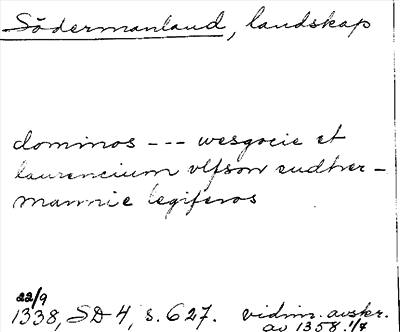 Södermanland, landskap
dominos --- wesgocie et
laurencium vlfson sudher-
mannie legiferos
22/9
1338, SD 4, s. 627. vidim. avskr.
av 1358 1/7